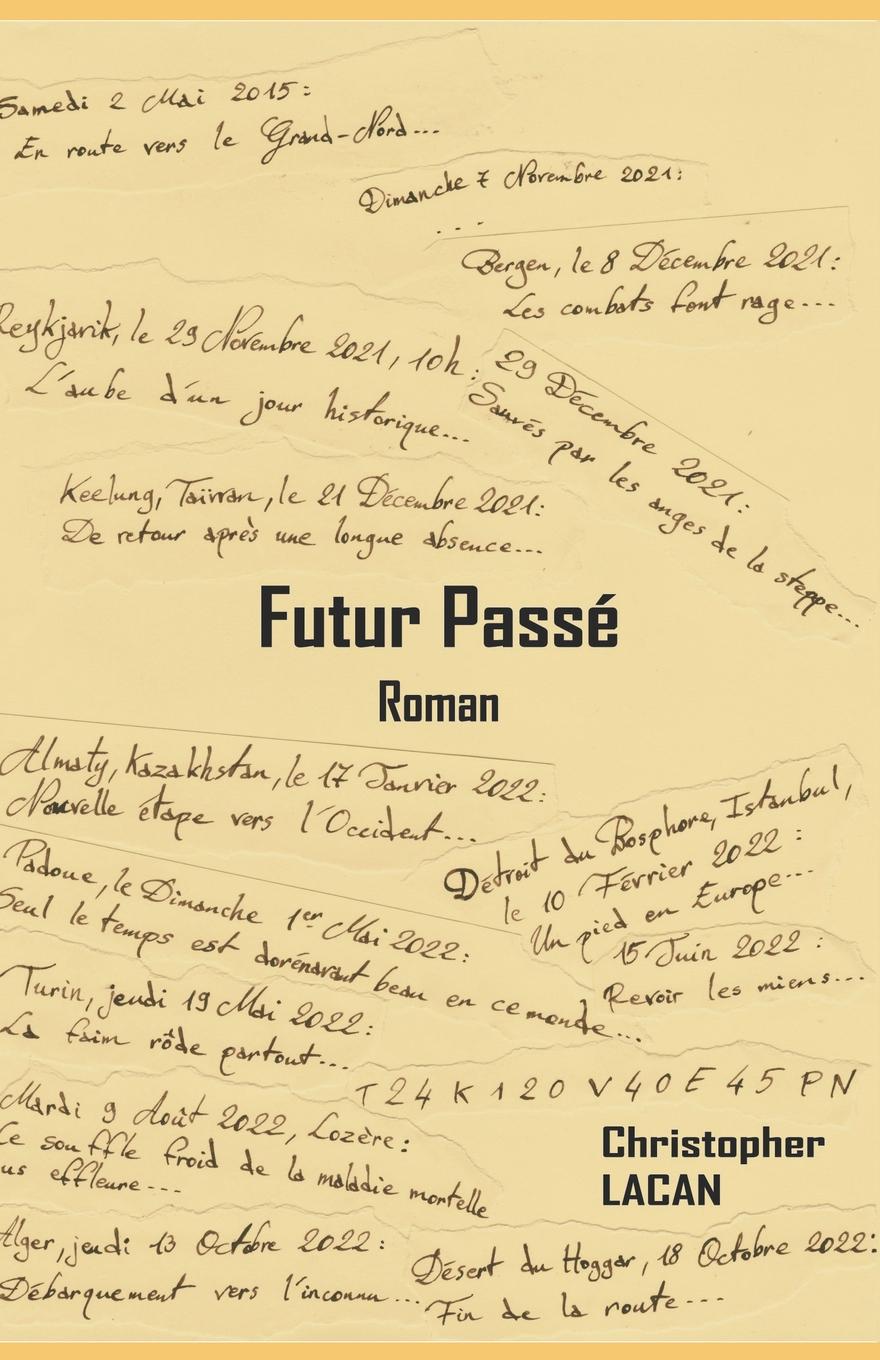 Samedi 2 Mai 2015 :
En route vers le Grand-Nord...
Dimanche 7 Novembre 2021 :
...
Bergen, le 8 Décembre 2021 :
Les combats font rage...
Reykjavik, le 29 Novembre 2021, 10h :
L'aube d'un jour historique...
29 Décembre 2021 :
Sauvés par les anges de la steppe...
Keelung, Taïwan, le 21 Décembre 2021 :
De retour après une longue absence...
Futur Passé
Roman
Almaty, Kazakhstan, le 17 Janvier 2022 :
Nouvelle étape vers l'Occident...
Détroit du Bosphore, Istanbul,
le 10 Février 2022 :
Un pied en Europe...
Padoue, le Dimanche 1er Mai 2022 :
Seul le temps est dorénavant beau en ce monde...
15 Juin 2022 :
Revoir les miens...
Turin, jeudi 19 Mai 2022 :
La faim rôde partout...
T24K120V40E45PN
Mardi 9 Août 2022, Lozère :
Le souffle froid de la maladie mortelle
us effleure...
Christopher
LACAN
Alger, jeudi 13 Octobre 2022 :
Débarquement vers l'inconnu...
Désert du Hoggar, 18 Octobre 2022 :
Fin de la route...